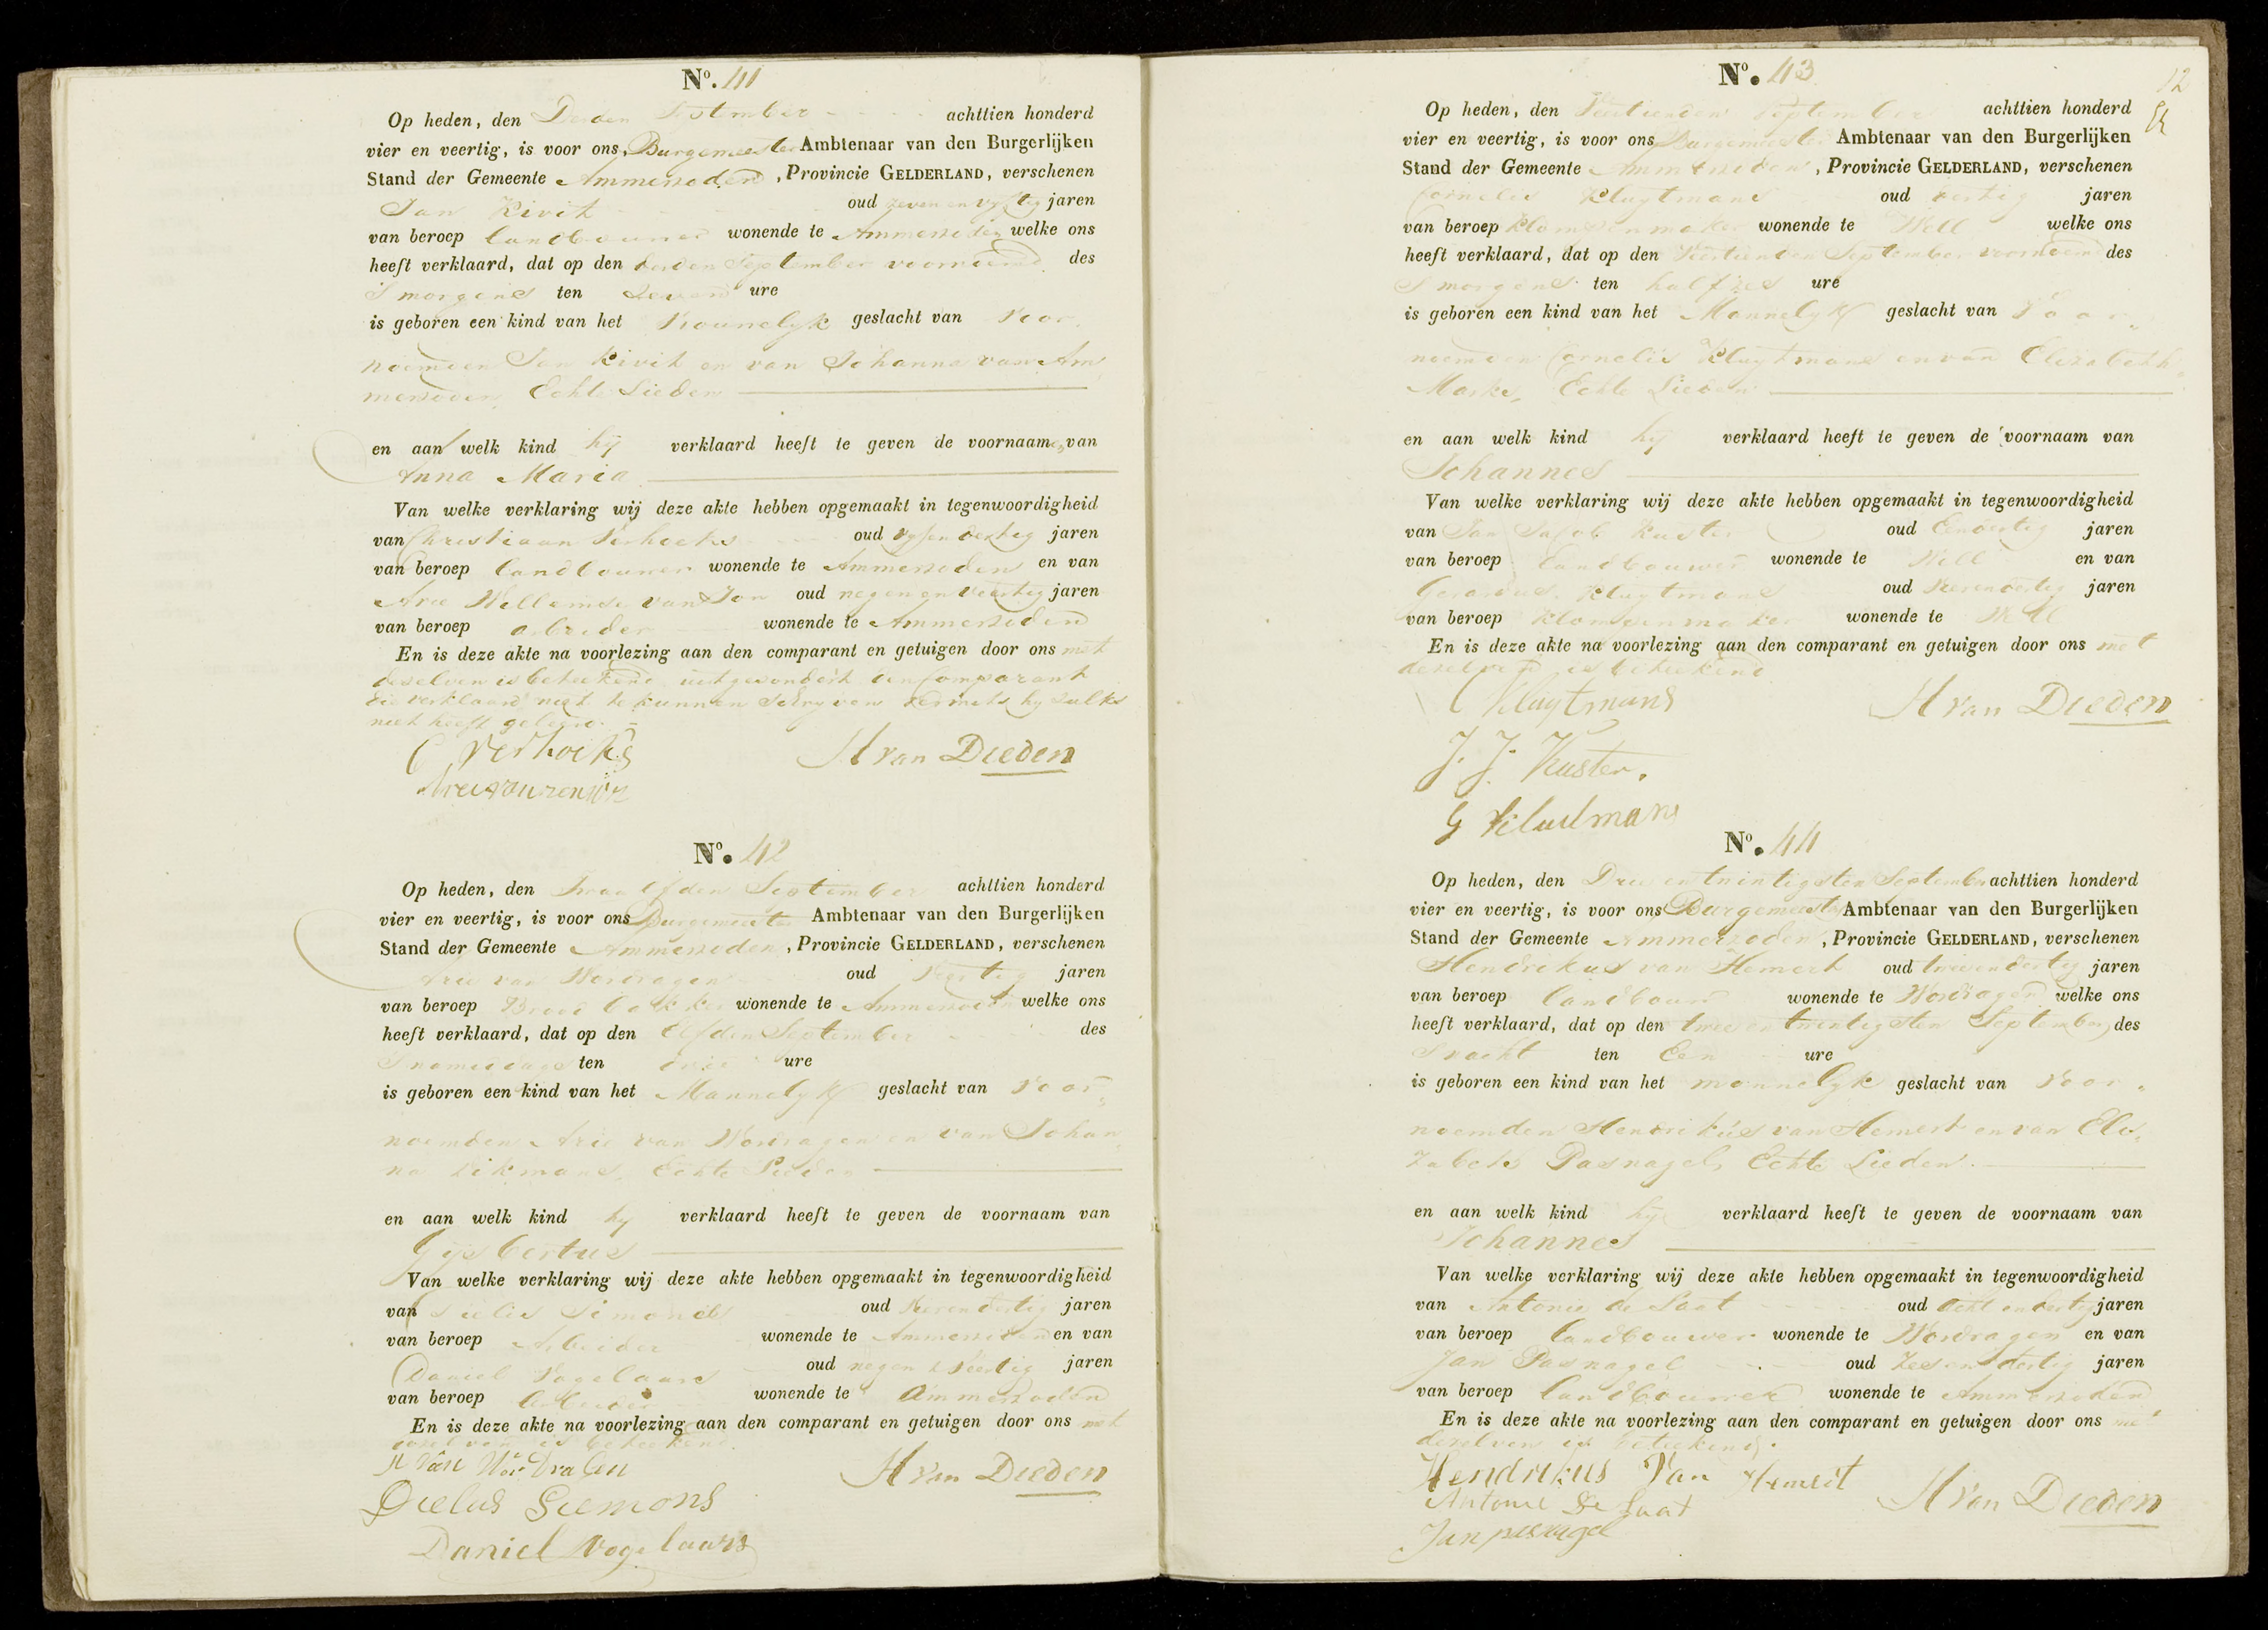 No. 41
Op heden, den Derden September achttien honderd
vier en veertig, is voor ons, Burgemeester Ambtenaar van den Burgerlijken
Stand der Gemeente Ammerzoden, Provincie GELDERLAND, verschenen
Jan Kivit oud zeven en vyftig jaren
van beroep landbouwer wonende te Ammerzoden welke ons
heeft verklaard, dat op den derden September voornoemd des
S morgens ten zeven ure
is geboren een kind van het Vrouwelyk geslacht van Voor„
noemden Jan Kivit en van Johanna van Am„
merzoden, Echte Lieden
en aan welk kind hy verklaard heeft te geven de voornaamen van
Anna Maria
Van welke verklaring wij deze akte hebben opgemaakt in tegenwoordigheid
van Christiaan Verhoeks oud vyfendertig jaren
van beroep landbouwer wonende te Ammerzoden en van
Arie Willemse van Zon oud negen en veertig jaren
van beroep arbeider wonende te Ammerzoden
En is deze akte na voorlezing aan den comparant en getuigen door ons met
deselven is beteekend uitgezonderd den Comparant
die verklaard niet te kunnen Schryven vermits hy zulks
niet heeft geleerd.
C Verhoeks H van Dieden
No. 42
Op heden, den Twaalfden September achttien honderd
vier en veertig, is voor ons Burgemeester Ambtenaar van den Burgerlijken
Stand der Gemeente Ammerzoden, Provincie GELDERLAND, verschenen
Arie van Wordragen oud Veertig jaren
van beroep Brood bakker wonende te Ammerzoden welke ons
heeft verklaard, dat op den Elfden September des
S namiddags ten drie ure
is geboren een kind van het Mannelyk geslacht van Voor„
noemden Arie van Wordragen en van Johan„
na Dikmans, Echte Lieden
en aan welk kind hy verklaard heeft te geven de voornaam van
Gijsbertus
Van welke verklaring wij deze akte hebben opgemaakt in tegenwoordigheid
van Simons oud Vierendertig jaren
van beroep Arbeider wonende te Ammerzoden en van
Daniel Vogelaars oud negen & Veertig jaren
van beroep Arbeider wonende te Ammerzoden
En is deze akte na voorlezing aan den comparant en getuigen door ons met
deselven is beteekend.
A van Wordragen H van Dieden
Dielus Siemons
Daniel Vogelaars
No. 43 12
Op heden, den Veertienden September achttien honderd
vier en veertig, is voor ons Burgemeester Ambtenaar van den Burgerlijken
Stand der Gemeente Ammerzoden, Provincie GELDERLAND, verschenen
Cornelis Kluytmans oud dertig jaren
van beroep Klompenmaker wonende te Well welke ons
heeft verklaard, dat op den Veertienden September voornoemd des
S morgens ten half zes ure
is geboren een kind van het Mannelyk geslacht van Voor„
noemden Cornelis Kluytmans en van Elizabeth
Marks, Echte Lieden
en aan welk kind hy verklaard heeft te geven de voornaam van
Johannes
Van welke verklaring wij deze akte hebben opgemaakt in tegenwoordigheid
van Jan Jacob Kuster oud Eendertig jaren
van beroep Landbouwer wonende te Well en van
Gerardus Kluytmans oud Vierendertig jaren
van beroep Klompenmaker wonende te Well
En is deze akte na voorlezing aan den comparant en getuigen door ons met
deselven is beteekend
C Kluytmans H van Dieden
J. J. Kuster.
G Kluitmans
No. 44
Op heden, den Drie en twintigsten September achttien honderd
vier en veertig, is voor ons Burgemeester Ambtenaar van den Burgerlijken
Stand der Gemeente Ammerzoden, Provincie GELDERLAND, verschenen
Hendrikus van Hemert oud tweeendertig jaren
van beroep landbouwer wonende te Wordragen welke ons
heeft verklaard, dat op den twee en twintigsten September, des
S nacht ten Een ure
is geboren een kind van het mannelyk geslacht van Voor„
noemden Hendrikus van Hemert en van Eli„
zabeth Pasnagel, Echte Lieden.
en aan welk kind hy verklaard heeft te geven de voornaam van
Johannes
Van welke verklaring wij deze akte hebben opgemaakt in tegenwoordigheid
van Antonie de Laat oud acht en dertig jaren
van beroep landbouwer wonende te Wordragen en van
Jan Pasnagel oud Zesendertig jaren
van beroep landbouwer wonende te Ammerzoden
En is deze akte na voorlezing aan den comparant en getuigen door ons met
deselven is beteekend.
Hendrikus Van Hemert H van Dieden
Antonie De Laat
Jan pasnagel